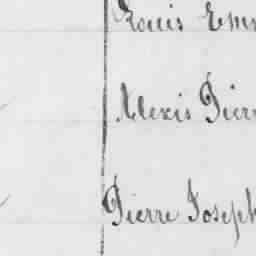 Louis
Alexis Pierre
Pierre Joseph